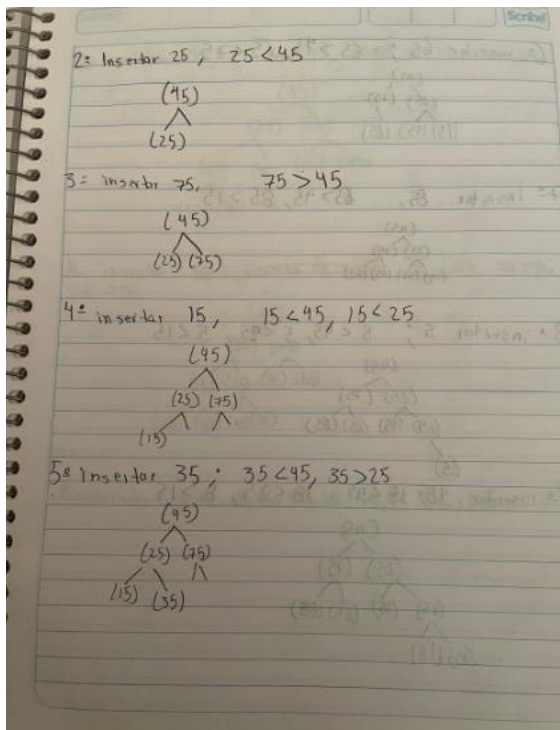 Scribe
2º Insertar 25, 25<45
(45)
(25)
3º insertar 75, 75>45
(45)
(25) (75)
4º insertar 15, 15<45, 15<25
(45)
(25) (75)
(15)
5º insertar 35; 35<45, 35>25
(45)
(25) (75)
(15) (35)